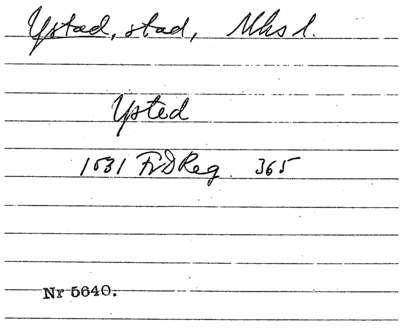 Ystad, stad, Mhs l.
Ysted
1531 FrDReg. 365
Nr 5640.